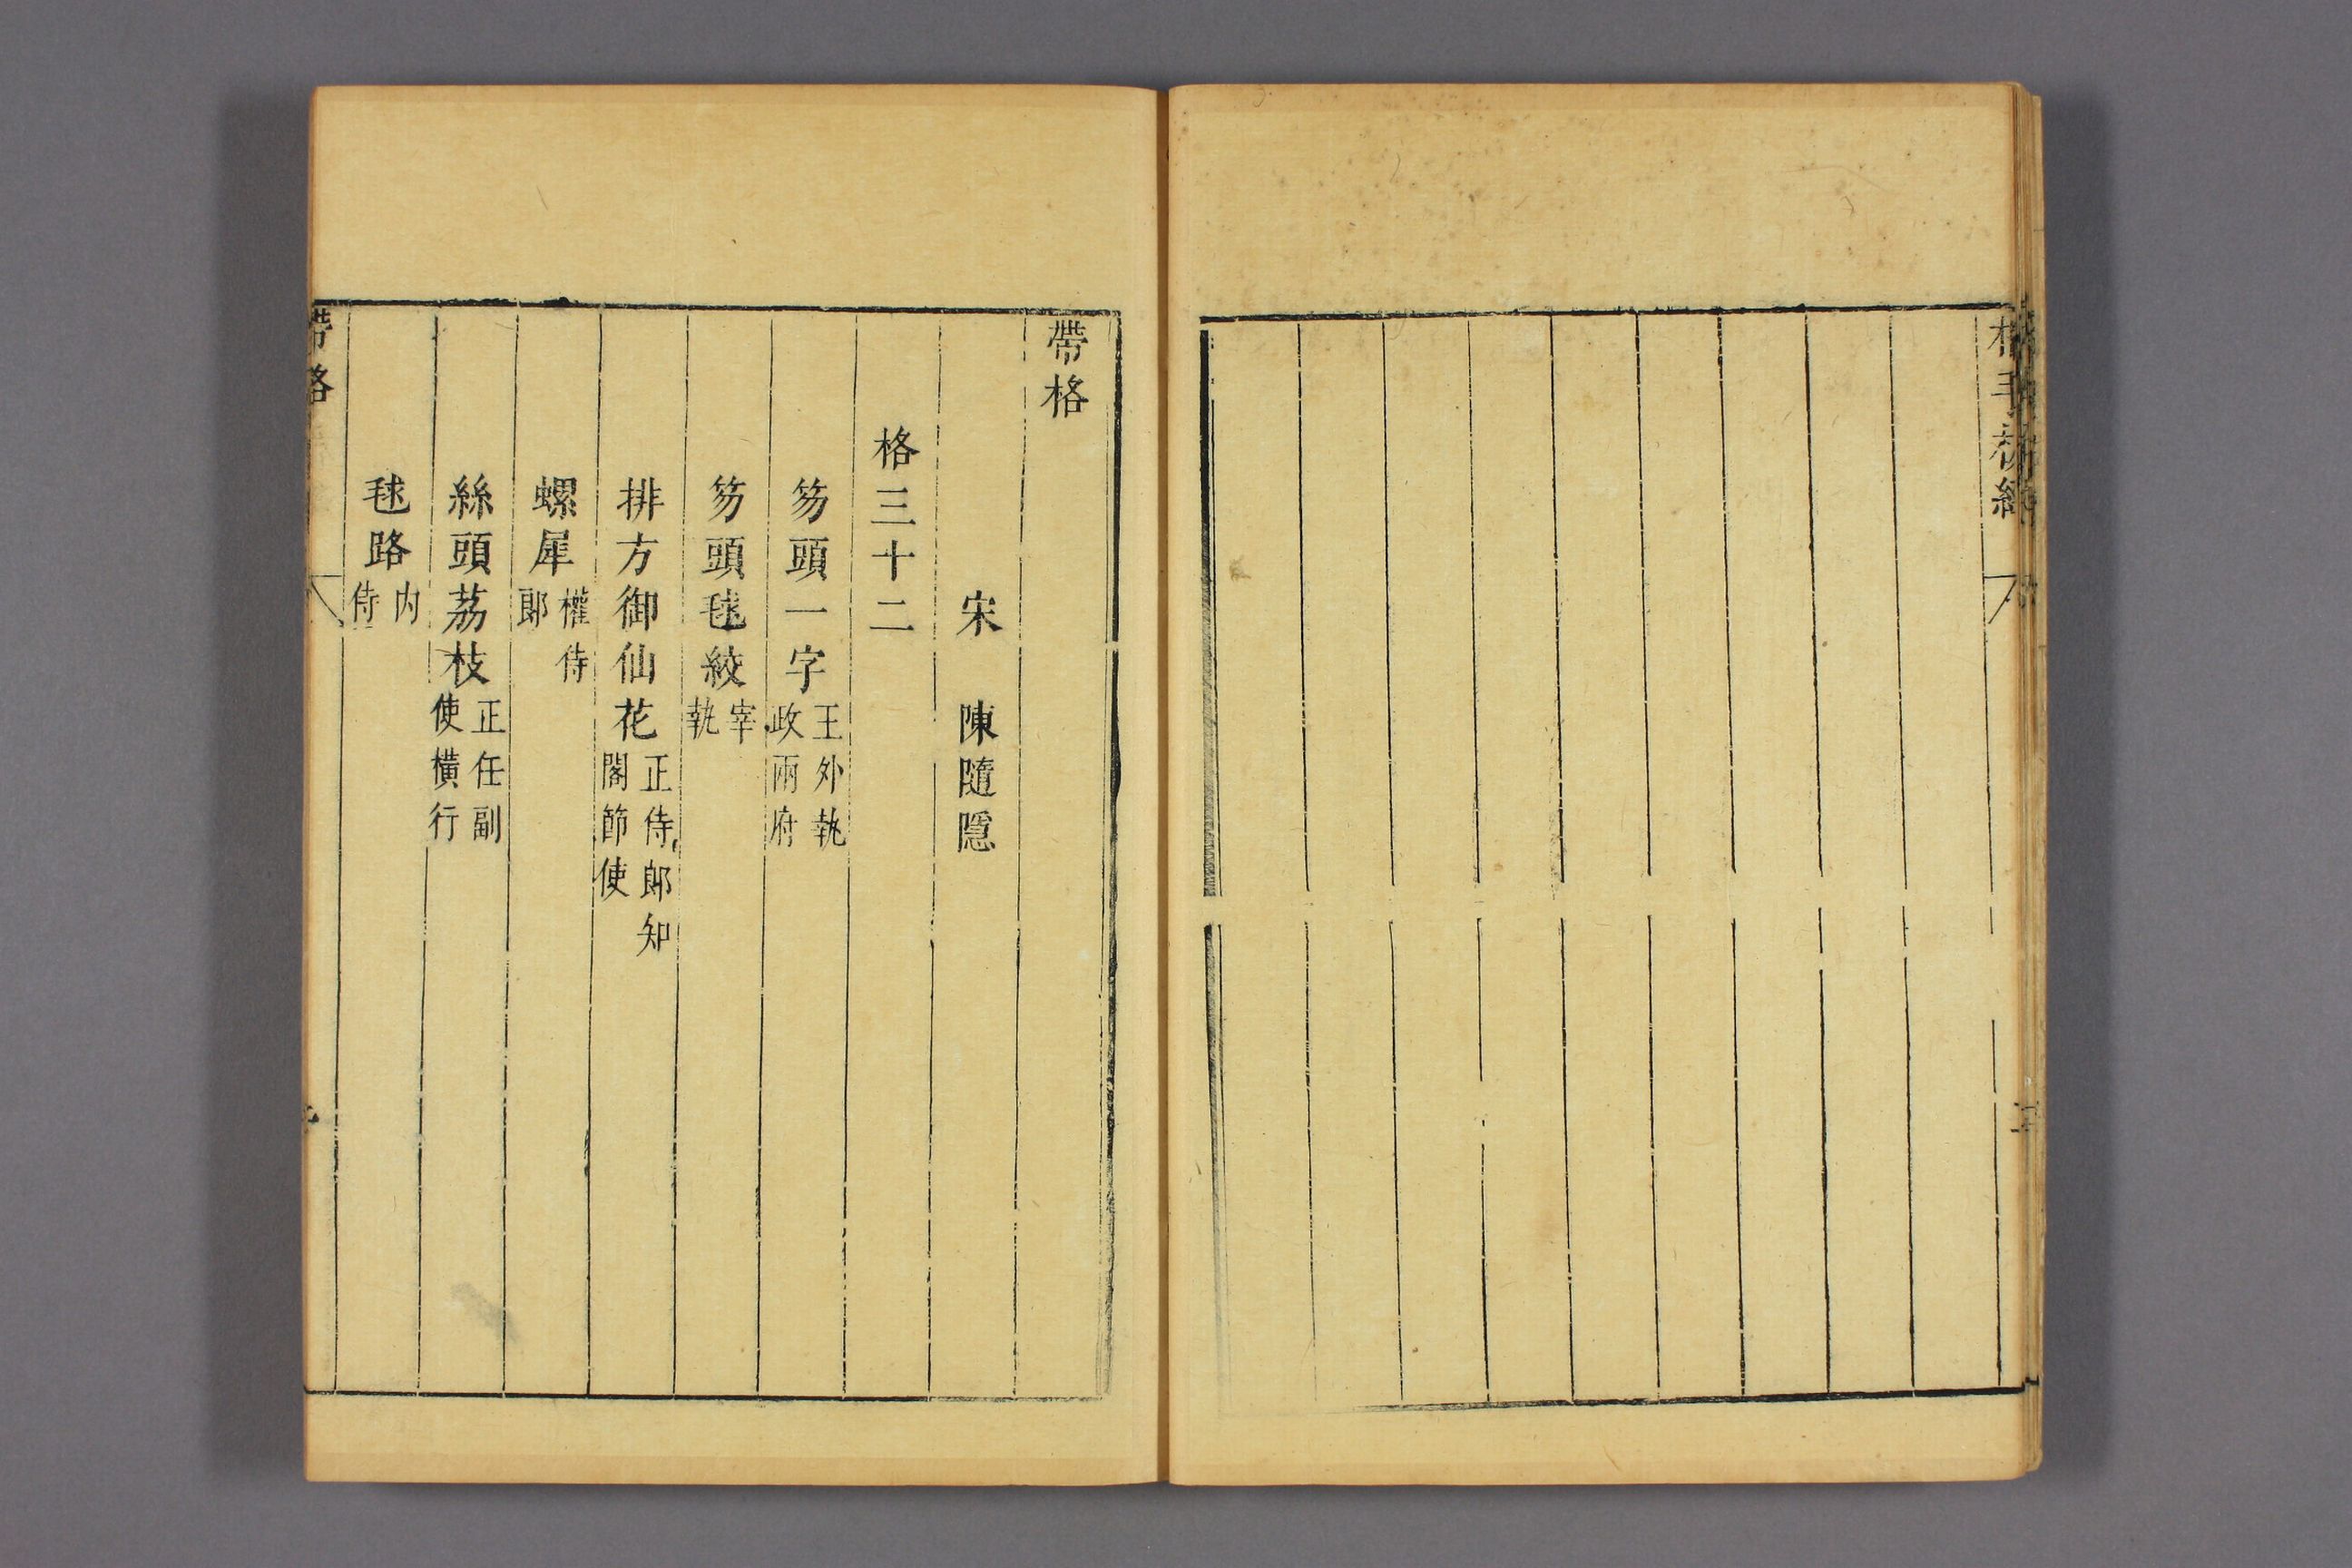 帶格
宋　陳隨隱
格三十二
笏頭一字王外執政兩府
笏頭毬絞宰執
排方御仙花正侍郎知閣節使
螺犀權侍郎
絲頭荔枝正任副使橫行
毬路內侍
帶格